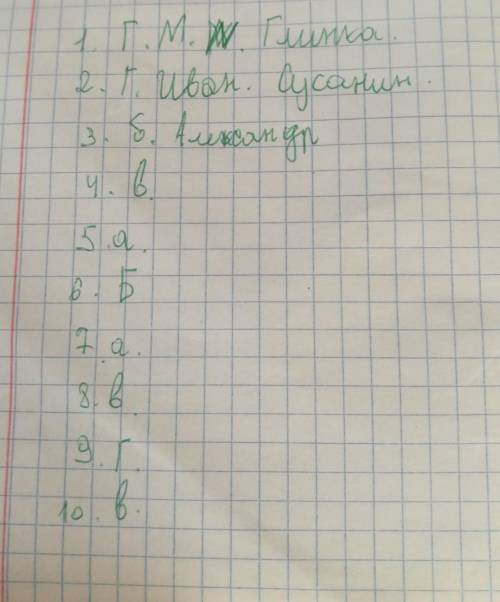 1. Г. М. И. Глинка.
2. Г. Иван. Сусанин.
3. б. Александр
4. в.
5. а.
6. Б
7. а.
8. в.
9. Г.
10. в.